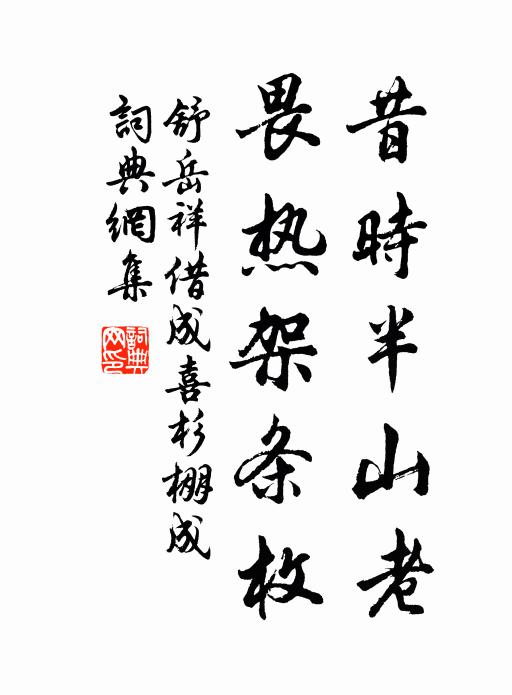 昔時半山老
畏热架条枚
舒岳祥借成喜杉棚成
詞典網集
詞典
网印